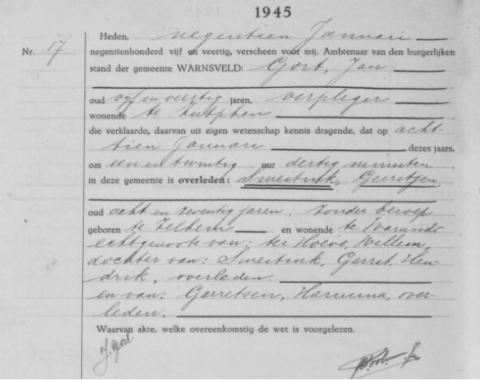 1945
Heden, negentien Januari
Nr. 17 negentienhonderd vijf en veertig, verscheen voor mij, Ambtenaar van den burgerlijken
stand der gemeente WARNSVELD: Gort, Jan
oud vijf en veertig jaren, verpleger
wonende te Zutphen
die verklaarde, daarvan uit eigen wetenschap kennis dragende, dat op acht-
tien Januari dezes jaars,
om een en twintig uur dertig minuten
in deze gemeente is overleden: Smeitink, Gerritjen
oud acht en zeventig jaren, zonder beroep
geboren te Zelhem en wonende te Warnsveld
echtgenoote van: ter Hoeve, Willem,
dochter van: Smeitink, Gerrit Hen-
drik, overleden
en van: Gerretsen, Harmina, over-
leden.
Waarvan akte, welke overeenkomstig de wet is voorgelezen.
J. Gort.